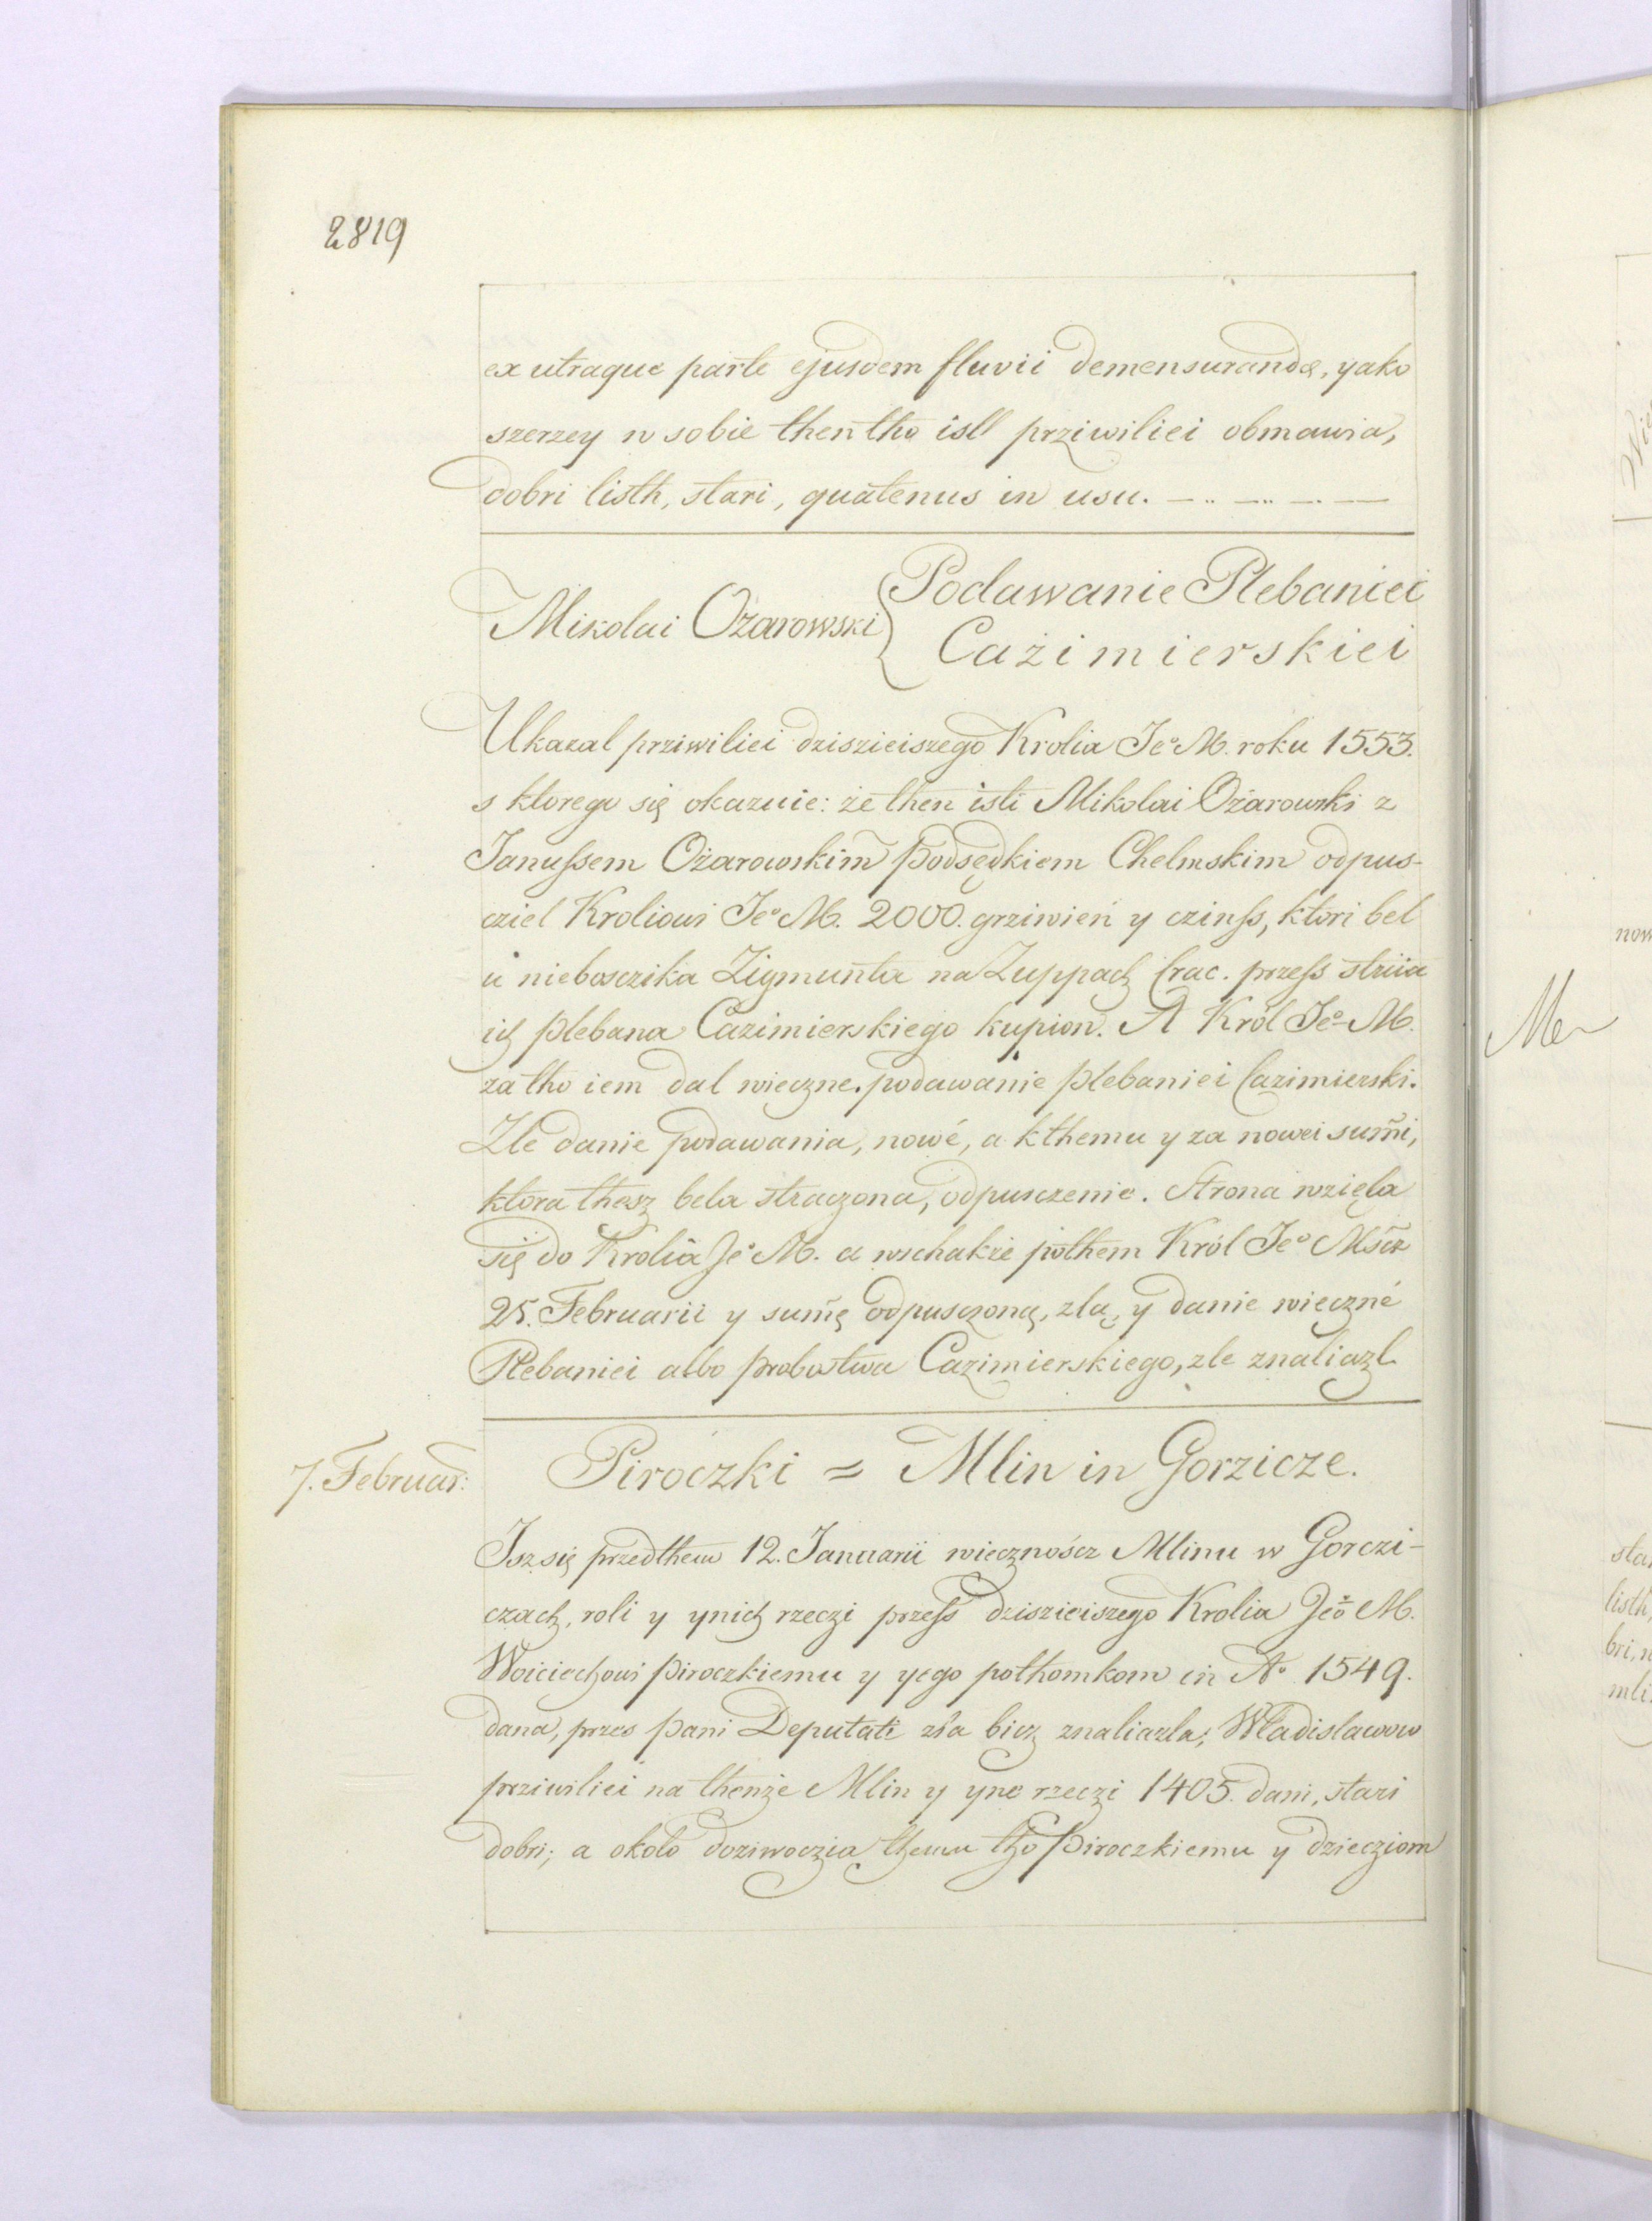 2819
ex utraque parte ejusdem fluvii demensurandæ, yako
szerzey w sobie then tho istl prziwiliei obmawia,
dobri listh, stari, quatenus in usu.
Mikolai Ożarowski { Podawanie Plebaniei
Cazimierskiei
Ukazal prziwiliei dziszieiszego Krolia Jeº M. roku 1553.
s ktorego się okazuie: że then isti Mikolai Ożarowski z
Janussem Ożarowskim Podsędkiem Chelmskim odpus-
cziel Kroliowi Jeº M. 2000. grziwień y czinss, ktori bel
u niebosczika Zigmunta na Zuppach Crac. przess striia
ich Plebana Cazimierskiego kupion. A Król Jeº M.
za tho iem dal wieczne podawanie Plebaniei Cazimierski.
Zle danie podawania, nowé, a kthemu y za nowei sum̃i,
ktora thesz bela straczona, odpusczenie. Strona wzięla
się do Krolia Jeº M. a wschakże pothem Król Jeº Mścz
25. Februarii y sum̃ę odpusczoną, zlą, y danie wieczné
Plebaniei albo probostwa Cazimierskiego, zle znaliazl.
7. Februar:
Piroczki = Mlin in Gorzicze.
Isz się przedthem 12. Januarii wiecznoścz Mlinu w Gorczi-
czach, roli y ynich rzeczi przess dziszieiszego Krolia Jeº M.
Woiciechowi Piroczkiemu y yego pothomkom in Aº 1549.
dana, przes Pani Deputati zła bicz znaliazla; Wladislawow
prziwiliei na thenże Mlin y yne rzeczi 1405. dani, stari
dobri; a około doziwoczia themu tho Piroczkiemu y dziecziom